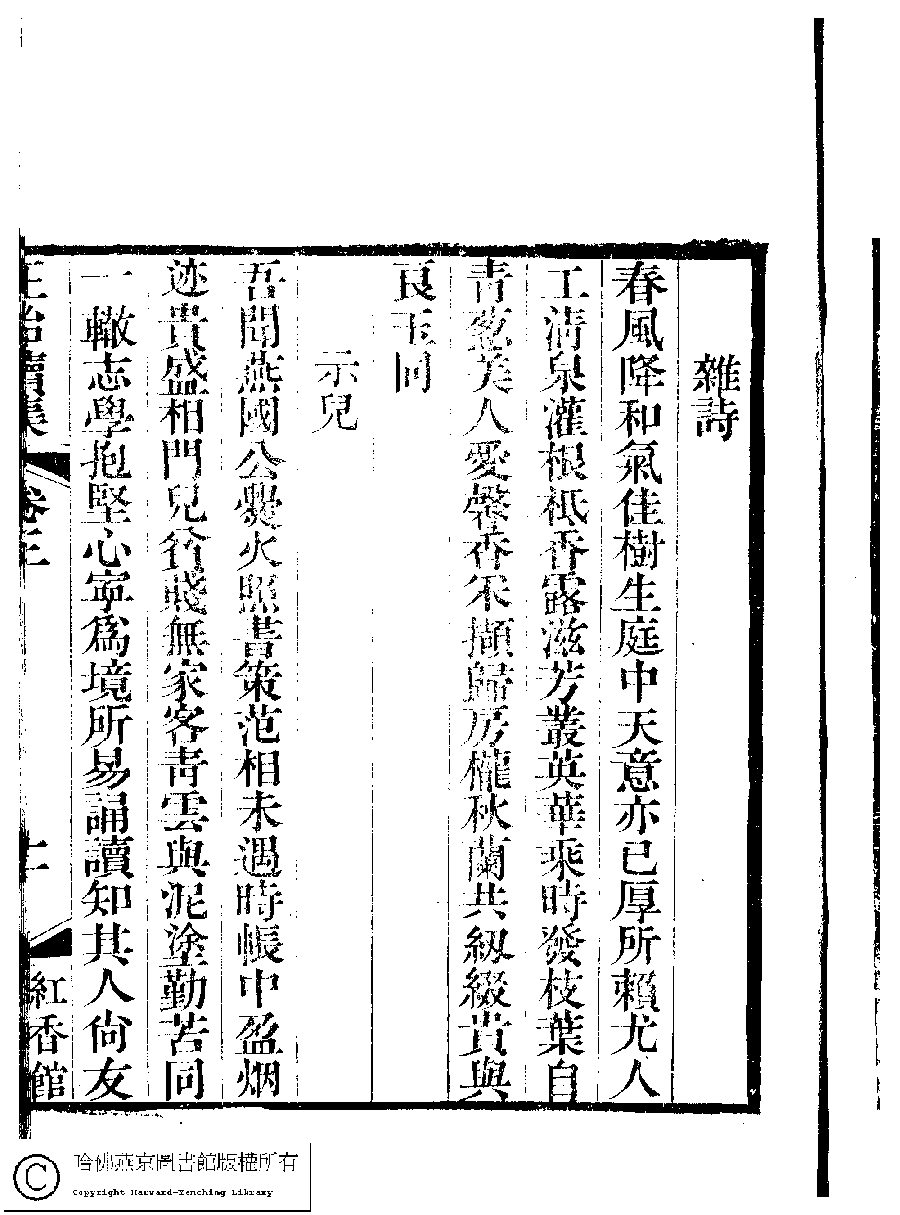 雜詩
春風降和氣佳樹生庭中天意亦已厚所賴尤人
工清泉灌根柢香露滋芳叢英華乘時發枝葉自
青蔥美人愛馨香采擷歸房櫳秋蘭共紉綴貴與
良玉同
示兒
吾聞燕國公爨火照書策范相未遇時帳中盈烟
迹貴盛相門兒貧賤無家客靑雲與泥塗勤苦同
一轍志學抱堅心寧爲境所易誦讀知其人尙友
卷三
紅香館
哈佛燕京圖書館版權所有
Copyright Harvard-Yenching Library